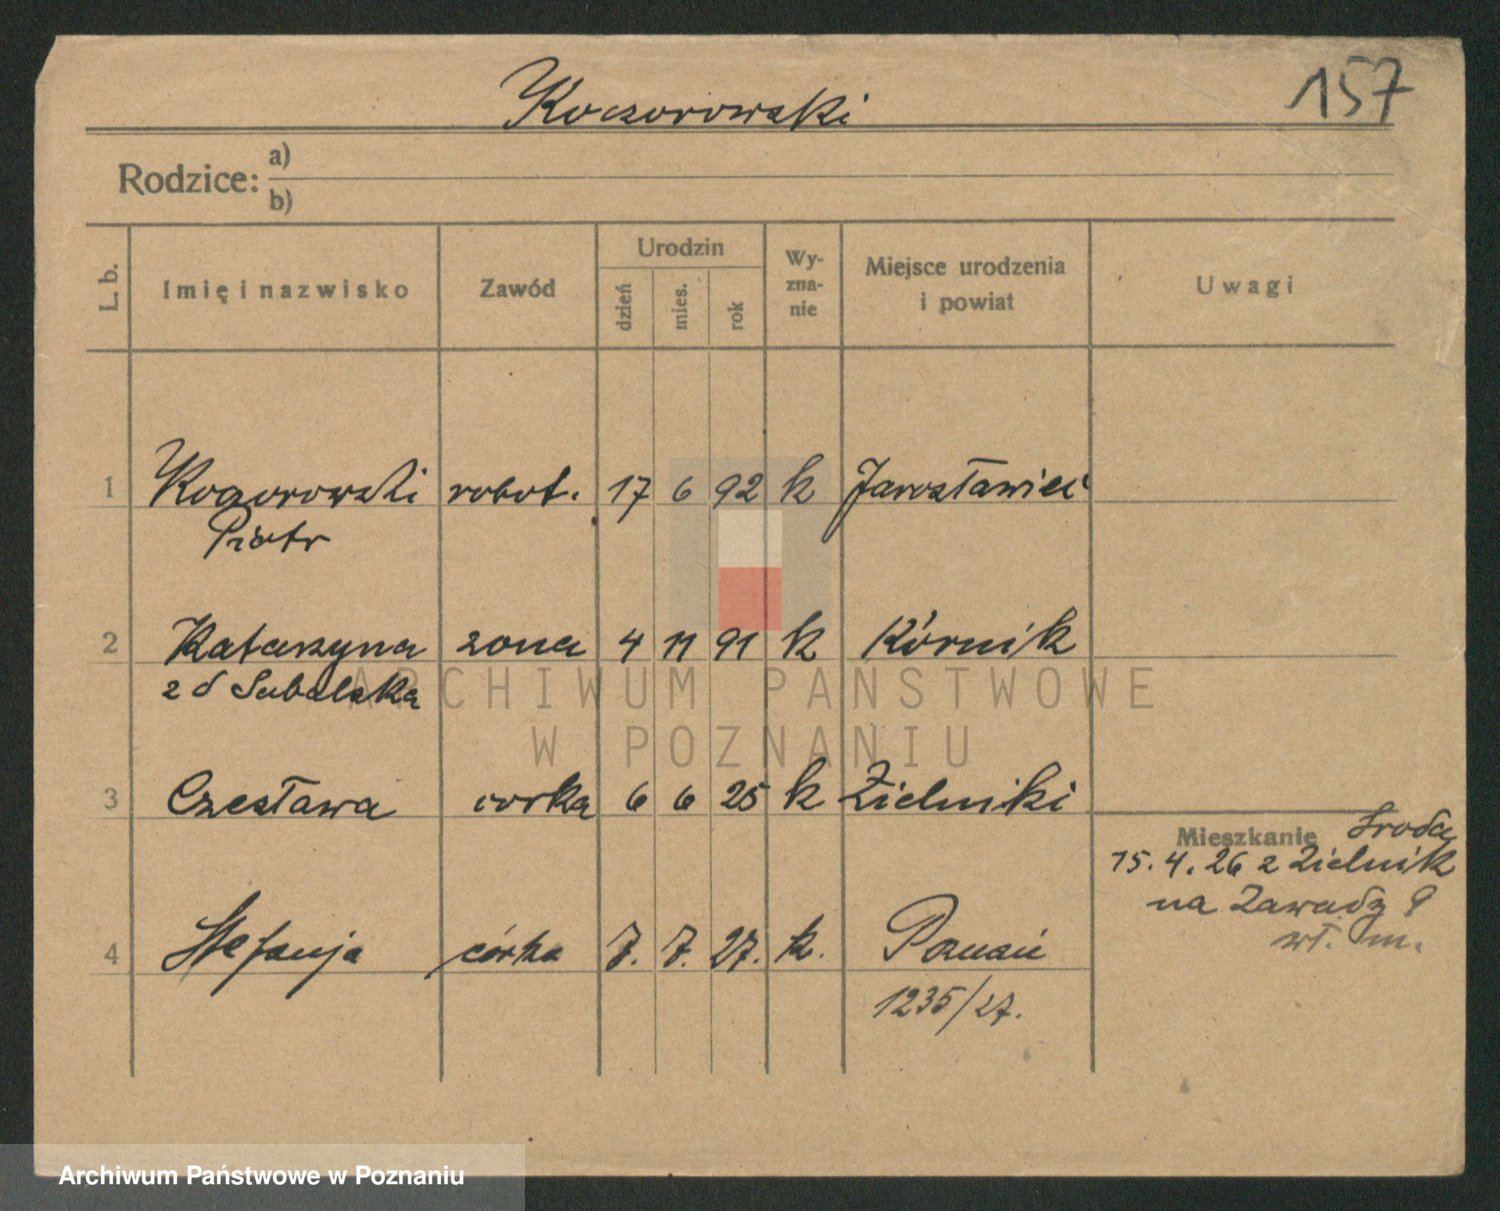 Koczorowski
157
Rodzice: a)
b)
L. b. Imię i nazwisko Zawód Urodzin dzień mies. rok Wy-zna-nie Miejsce urodzenia i powiat Uwagi
1 Koczorowski robot. 17 6 92 k Jarosławiec
Piotr
2 Katarzyna zona 4 11 91 k Kórnik
z d
ARCHIWUM PAŃSTWOWE
W POZNANIU
3 Czesława corka 6 6 25 k Zielniki
Mieszkanie Sroda
15. 4. 26 z Zielnik
na Zawady 9
4 Stefanja córka 7. 7. 27. k. Poznań
1235/27.
Archiwum Państwowe w Poznaniu